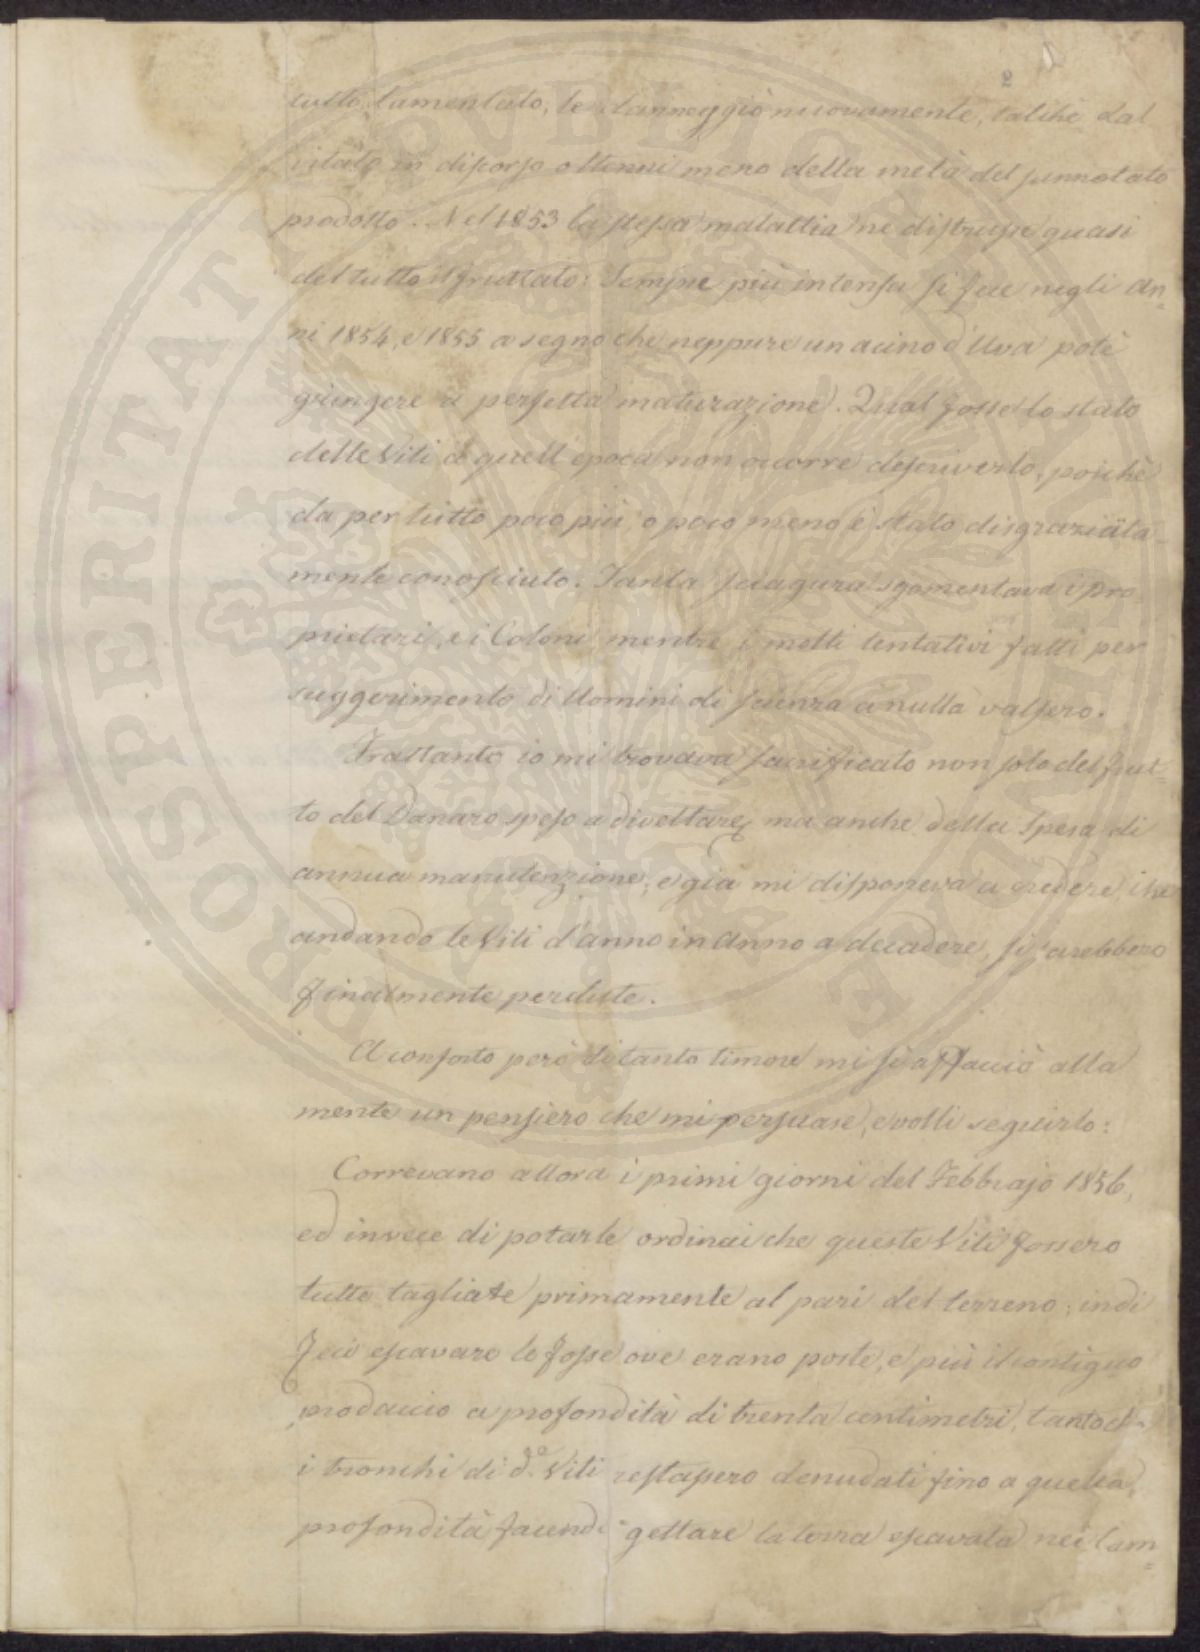 2
tutto lamentato, le danneggiò nuovamente, talchè dal
vitato in discorso ottenni meno della metà del sunnotato
prodotto. Nel 1853 la stessa malattia ne distrusse quasi
del tutto il fruttato: Sempre più intensa si fece negli An=
ni 1854, e 1855 a segno che neppure un acino d'Uva potè
giungere a perfetta maturazione. Qual fosse lo stato
delle Viti a quell'epoca non occorre descriverlo, poichè
da per tutto poco più, o poco meno è stato disgraziata-
mente conosciuto. Tanta sciagura sgomentava i pro-
prietari, e i Coloni, mentre i molti tentativi fatti per
suggerimento di Uomini di scienza a nulla valsero.
Frattanto io mi trovava sacrificato non solo del frut=
to del Danaro speso a divettare, ma anche della Spesa di
annua manutenzione, e già mi disponeva a credere, che
andando le Viti d'anno in Anno a decadere, si sarebbero
finalmente perdute.
A conforto però di tanto timore mi si affacciò alla
mente un pensiero che mi persuase, e volli seguirlo:
Correvano allora i primi giorni del Febbrajo 1856,
ed invece di potarle ordinai che queste Viti fossero
tutte tagliate primamente al pari del terreno; indi
feci escavare le fosse ove erano poste, e più il contiguo
prodaccio a profondità di trenta centimetri, tanto che
i tronchi di d.e Viti restassero denudati fino a quella
profondità facendo gettare la terra escavata nei cam=
PROSPERITATI PVBLICAE